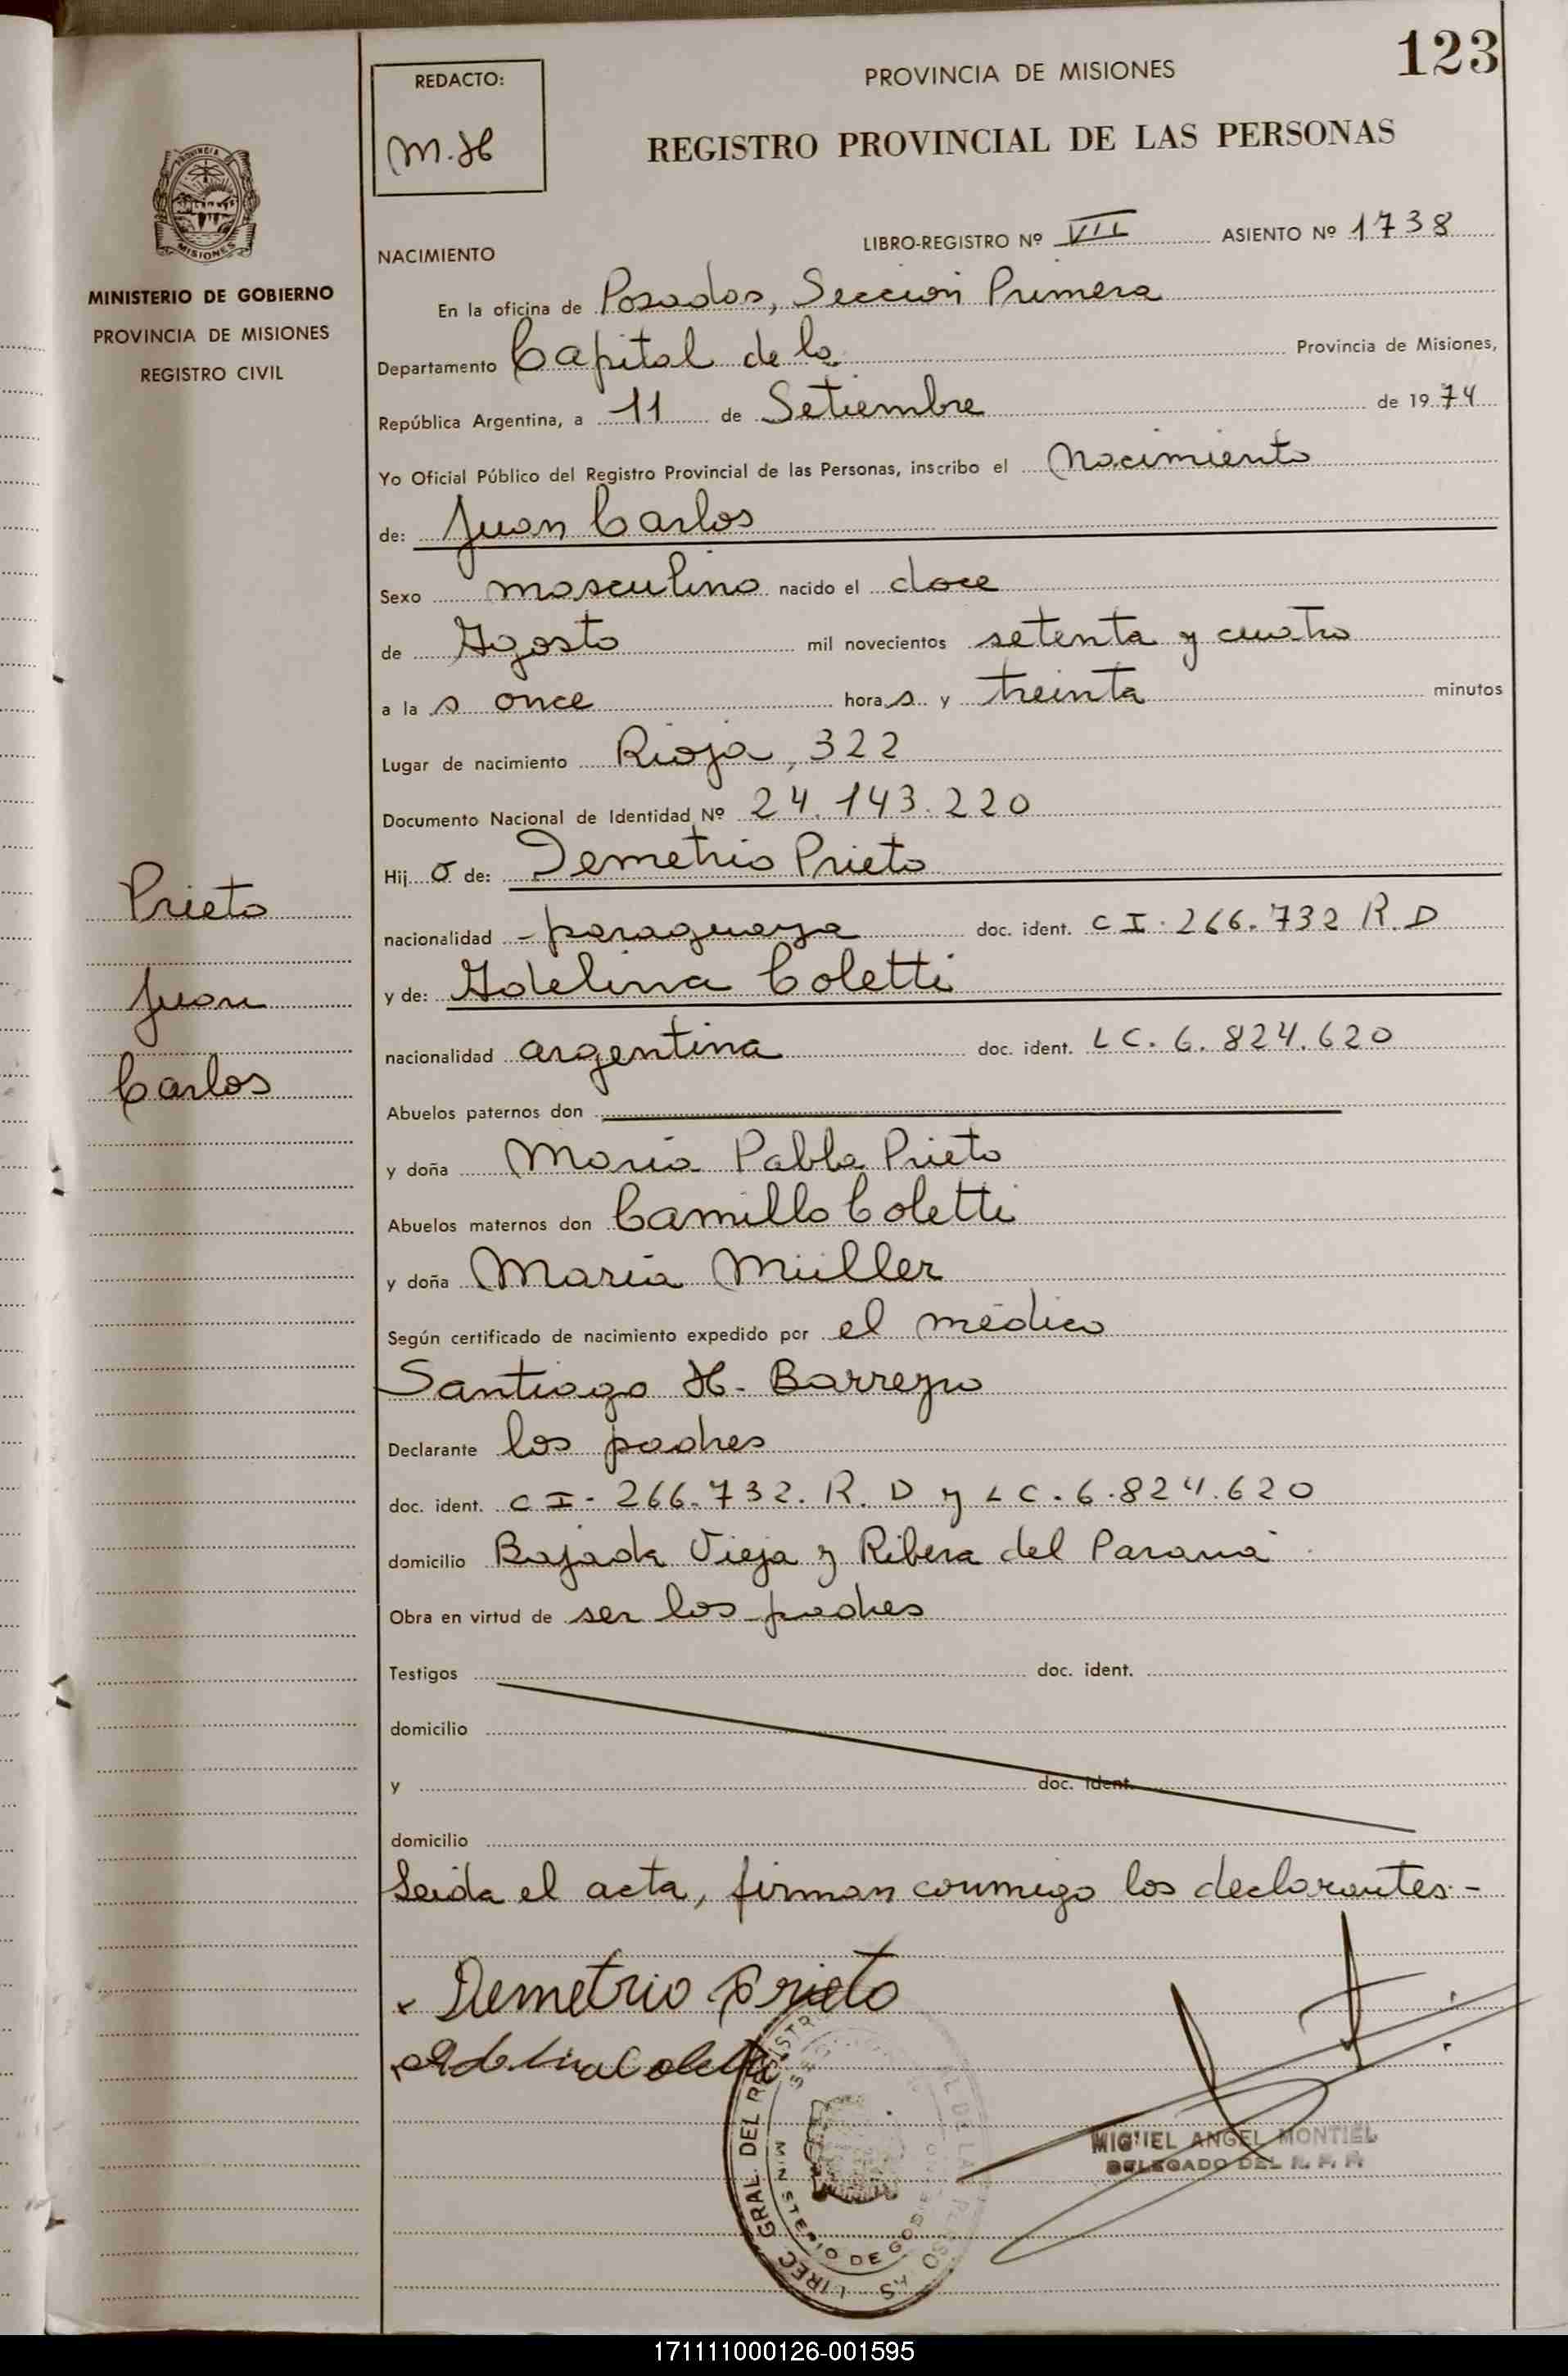 123
REDACTO:
M. H
PROVINCIA DE MISIONES
REGISTRO PROVINCIAL DE LAS PERSONAS
PROVINCIA
MISIONES
MINISTERIO DE GOBIERNO
PROVINCIA DE MISIONES
REGISTRO CIVIL
NACIMIENTO
LIBRO-REGISTRO Nº VII ASIENTO Nº 1738
En la oficina de Posadas, Sección Primera
Departamento Capital de la Provincia de Misiones,
República Argentina, a 11 de Setiembre de 1974
Yo Oficial Público del Registro Provincial de las Personas, inscribo el Nacimiento
de: Juan Carlos
Sexo masculino nacido el doce
de Agosto mil novecientos setenta y cuatro
a la s once hora s y treinta minutos
Lugar de nacimiento Rioja, 322
Documento Nacional de Identidad Nº 24.143.220
Hij o de: Demetrio Prieto
nacionalidad paraguaya doc. ident. C I. 266.732 R. D
y de: Adelina Coletti
nacionalidad argentina doc. ident. L C. 6.824.620
Abuelos paternos don
y doña Maria Pabla Prieto
Abuelos maternos don Camillo Coletti
y doña Maria Müller
Según certificado de nacimiento expedido por el médico
Santiago H. Barreyro
Declarante los padres
doc. ident. C I - 266.732. R. D y L C. 6.824.620
domicilio Bajada Vieja y Ribera del Parana
Obra en virtud de ser los padres
Testigos doc. ident.
domicilio
y doc. ident.
domicilio
Leida el acta, firman conmigo los declarantes.-
Prieto
Juan
Carlos
x Demetrio Prieto
x Adelina Coletti
MIGUEL ANGEL MONTIEL
DELEGADO DEL R. P. P.
DIREC. GRAL. DEL REGISTRO
MINISTERIO DE GOBIE
171111000126-001595